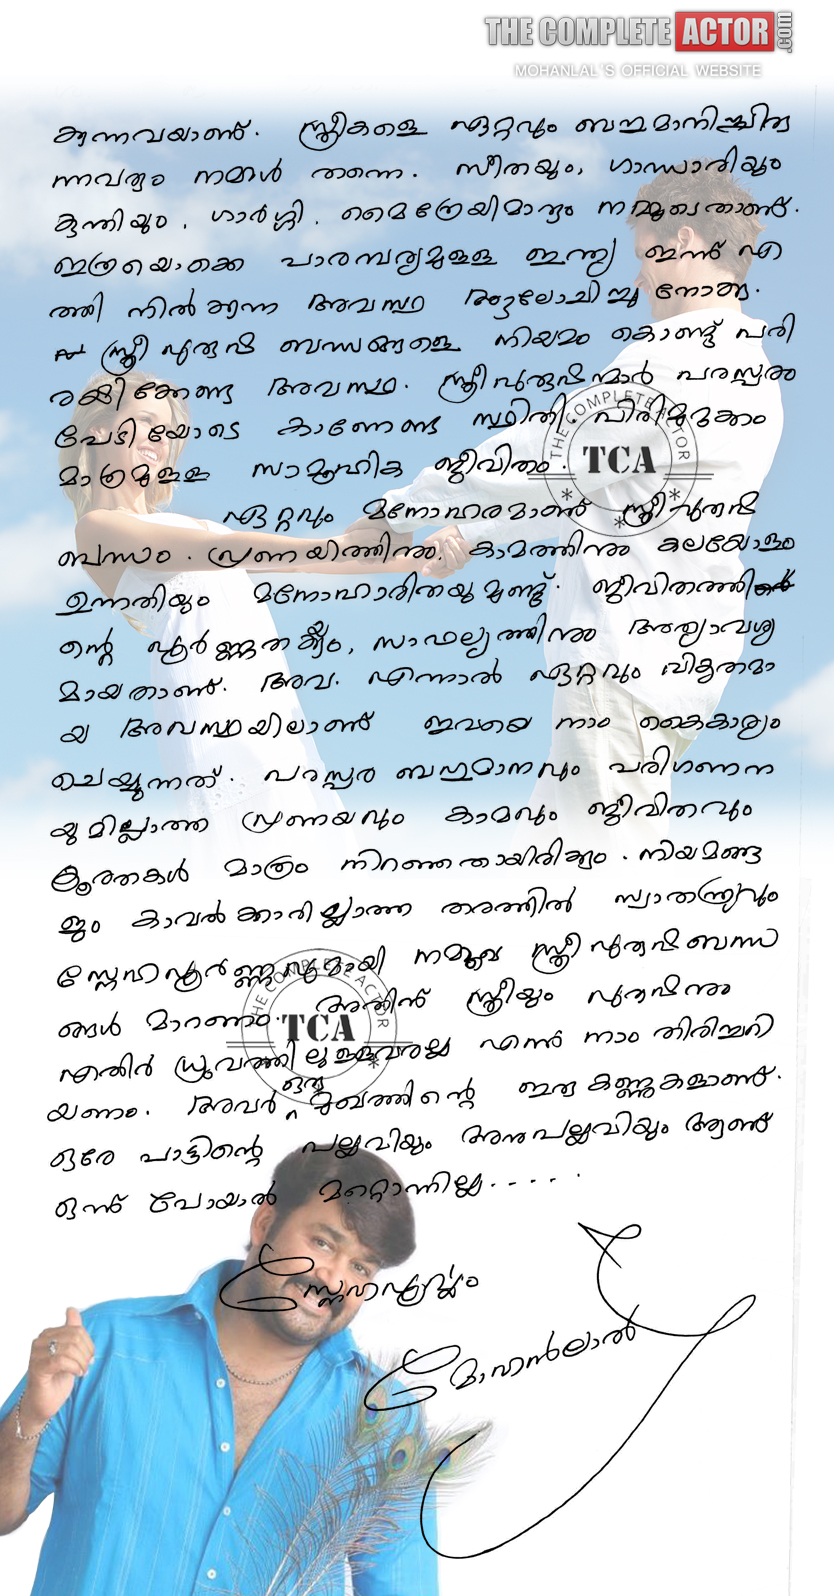 THE COMPLETE ACTOR .com
MOHANLAL'S OFFICIAL WEBSITE
കുന്നവയാണ്. സ്ത്രീകളെ ഏറ്റവും ബഹുമാനിച്ചിരു
ന്നവരും നമ്മൾ തന്നെ. സീതയും, ഗാന്ധാരിയും
കുന്തിയും, ഗാർഗ്ഗി, മൈത്രേയിമാരും നമ്മുടെതാണ്.
ഇത്രയൊക്കെ പാരമ്പര്യമുള്ള ഇന്ത്യ ഇന്ന് എ
ത്തി നിൽക്കുന്ന അവസ്ഥ ആലോചിച്ചു നോക്കൂ.
സ്ത്രീ പുരുഷ ബന്ധങ്ങളെ നിയമം കൊണ്ട് പരി
രക്ഷിക്കേണ്ട അവസ്ഥ. സ്ത്രീപുരുഷന്മാർ പരസ്പരം
പേടിയോടെ കാണേണ്ട സ്ഥിതി. പിരിമുറുക്കം
മാത്രമുള്ള സാമൂഹിക ജീവിതം.
ഏറ്റവും മനോഹരമാണ് സ്ത്രീപുരുഷ
ബന്ധം. പ്രണയത്തിനും, കാമത്തിനും കലയോളം
ഉന്നതിയും മനോഹാരിതയുമുണ്ട്. ജീവിതത്തി
ന്റെ പൂർണ്ണതക്കും, സാഫല്യത്തിനും അത്യാവശ്യ
മായതാണ് അവ. എന്നാൽ ഏറ്റവും വികൃതമാ
യ അവസ്ഥയിലാണ് ഇവയെ നാം കൈകാര്യം
ചെയ്യുന്നത്. പരസ്പര ബഹുമാനവും പരിഗണന
യുമില്ലാത്ത പ്രണയവും കാമവും ജീവിതവും
കൂരതകൾ മാത്രം നിറഞ്ഞതായിരിക്കും. നിയമങ്ങ
ളും കാവൽക്കാരില്ലാത്ത തരത്തിൽ സ്വാതന്ത്ര്യവും
സ്നേഹപൂർണ്ണവുമായി നമ്മുടെ സ്ത്രീ പുരുഷ ബന്ധ
ങ്ങൾ മാറണം. അതിന് സ്ത്രീയും പുരുഷനും
എതിർ ധ്രുവത്തിലുള്ളവരല്ല എന്ന് നാം തിരിച്ചറി
യണം. അവർ ഒരു മുഖത്തിന്റെ ഇരു കണ്ണുകളാണ്.
ഒരേ പാട്ടിന്റെ പല്ലവിയും അനുപല്ലവിയും ആണ്
ഒന്ന് പോയാൽ മറ്റൊന്നില്ല.....
സ്നേഹപൂർവ്വം
മോഹൻലാൽ
THE COMPLETE ACTOR
TCA
THE COMPLETE ACTOR
TCA